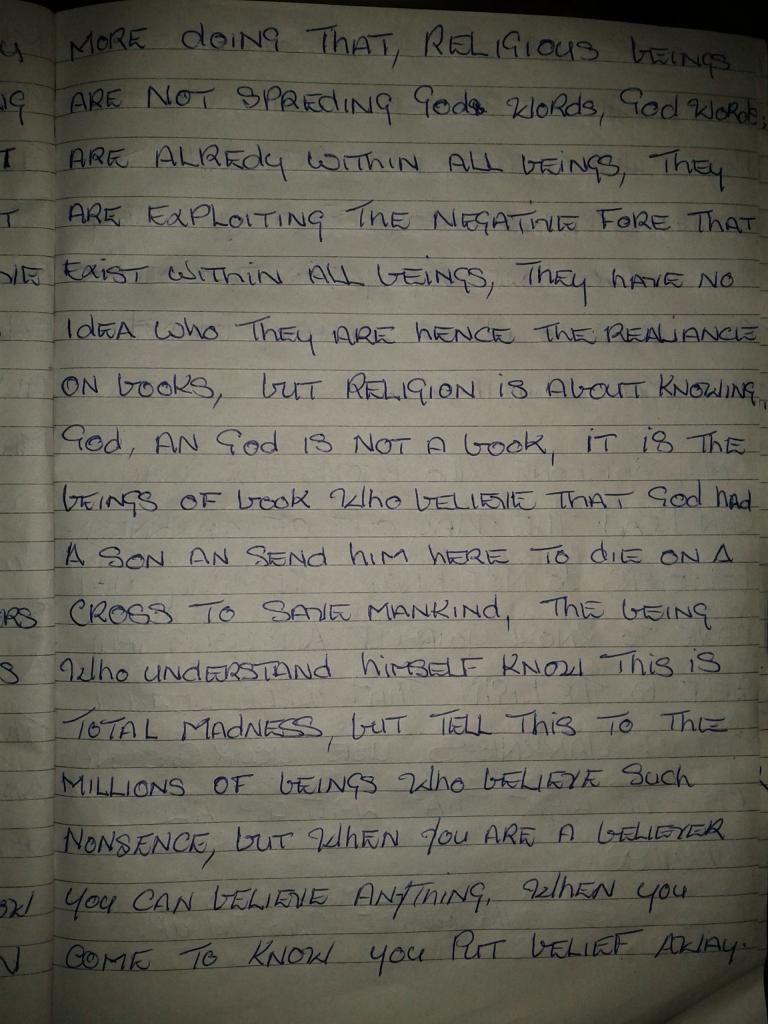 MORE doING THAT, RELIGIOUS bEINGS
ARE NOT SPREDING Gods WORds, God WORds,
ARE ALREdy WITHIN ALL bEINGS, THEy
ARE EXPLOITING THE NEGATIVE FORE THAT
EXIST WITHIN ALL bEINGS, THEy hAVE NO
IdEA WhO THEy ARE hENCE THE REALIANCE
ON bOOKS, bUT RELIGION IS AbOUT KNOWING
God, AN God IS NOT A bOOK, IT IS THE
bEINGS OF bOOK WhO bELIEVE THAT God hAd
A SON AN SEND hIM hERE TO dIE ON A
CROSS TO SAVE MANKIND, THE bEING
WhO UNDERSTAND hIMSELF KNOW THIS IS
TOTAL MAdNESS, bUT TELL THIS TO THE
MILLIONS OF bEINGS WhO bELIEVE SUch
NONSENCE, bUT WhEN yOU ARE A bELIEVER
yOU CAN bELIEVE ANyTHING, WhEN yOU
COME TO KNOW yOU PUT bELIEF AWAy.